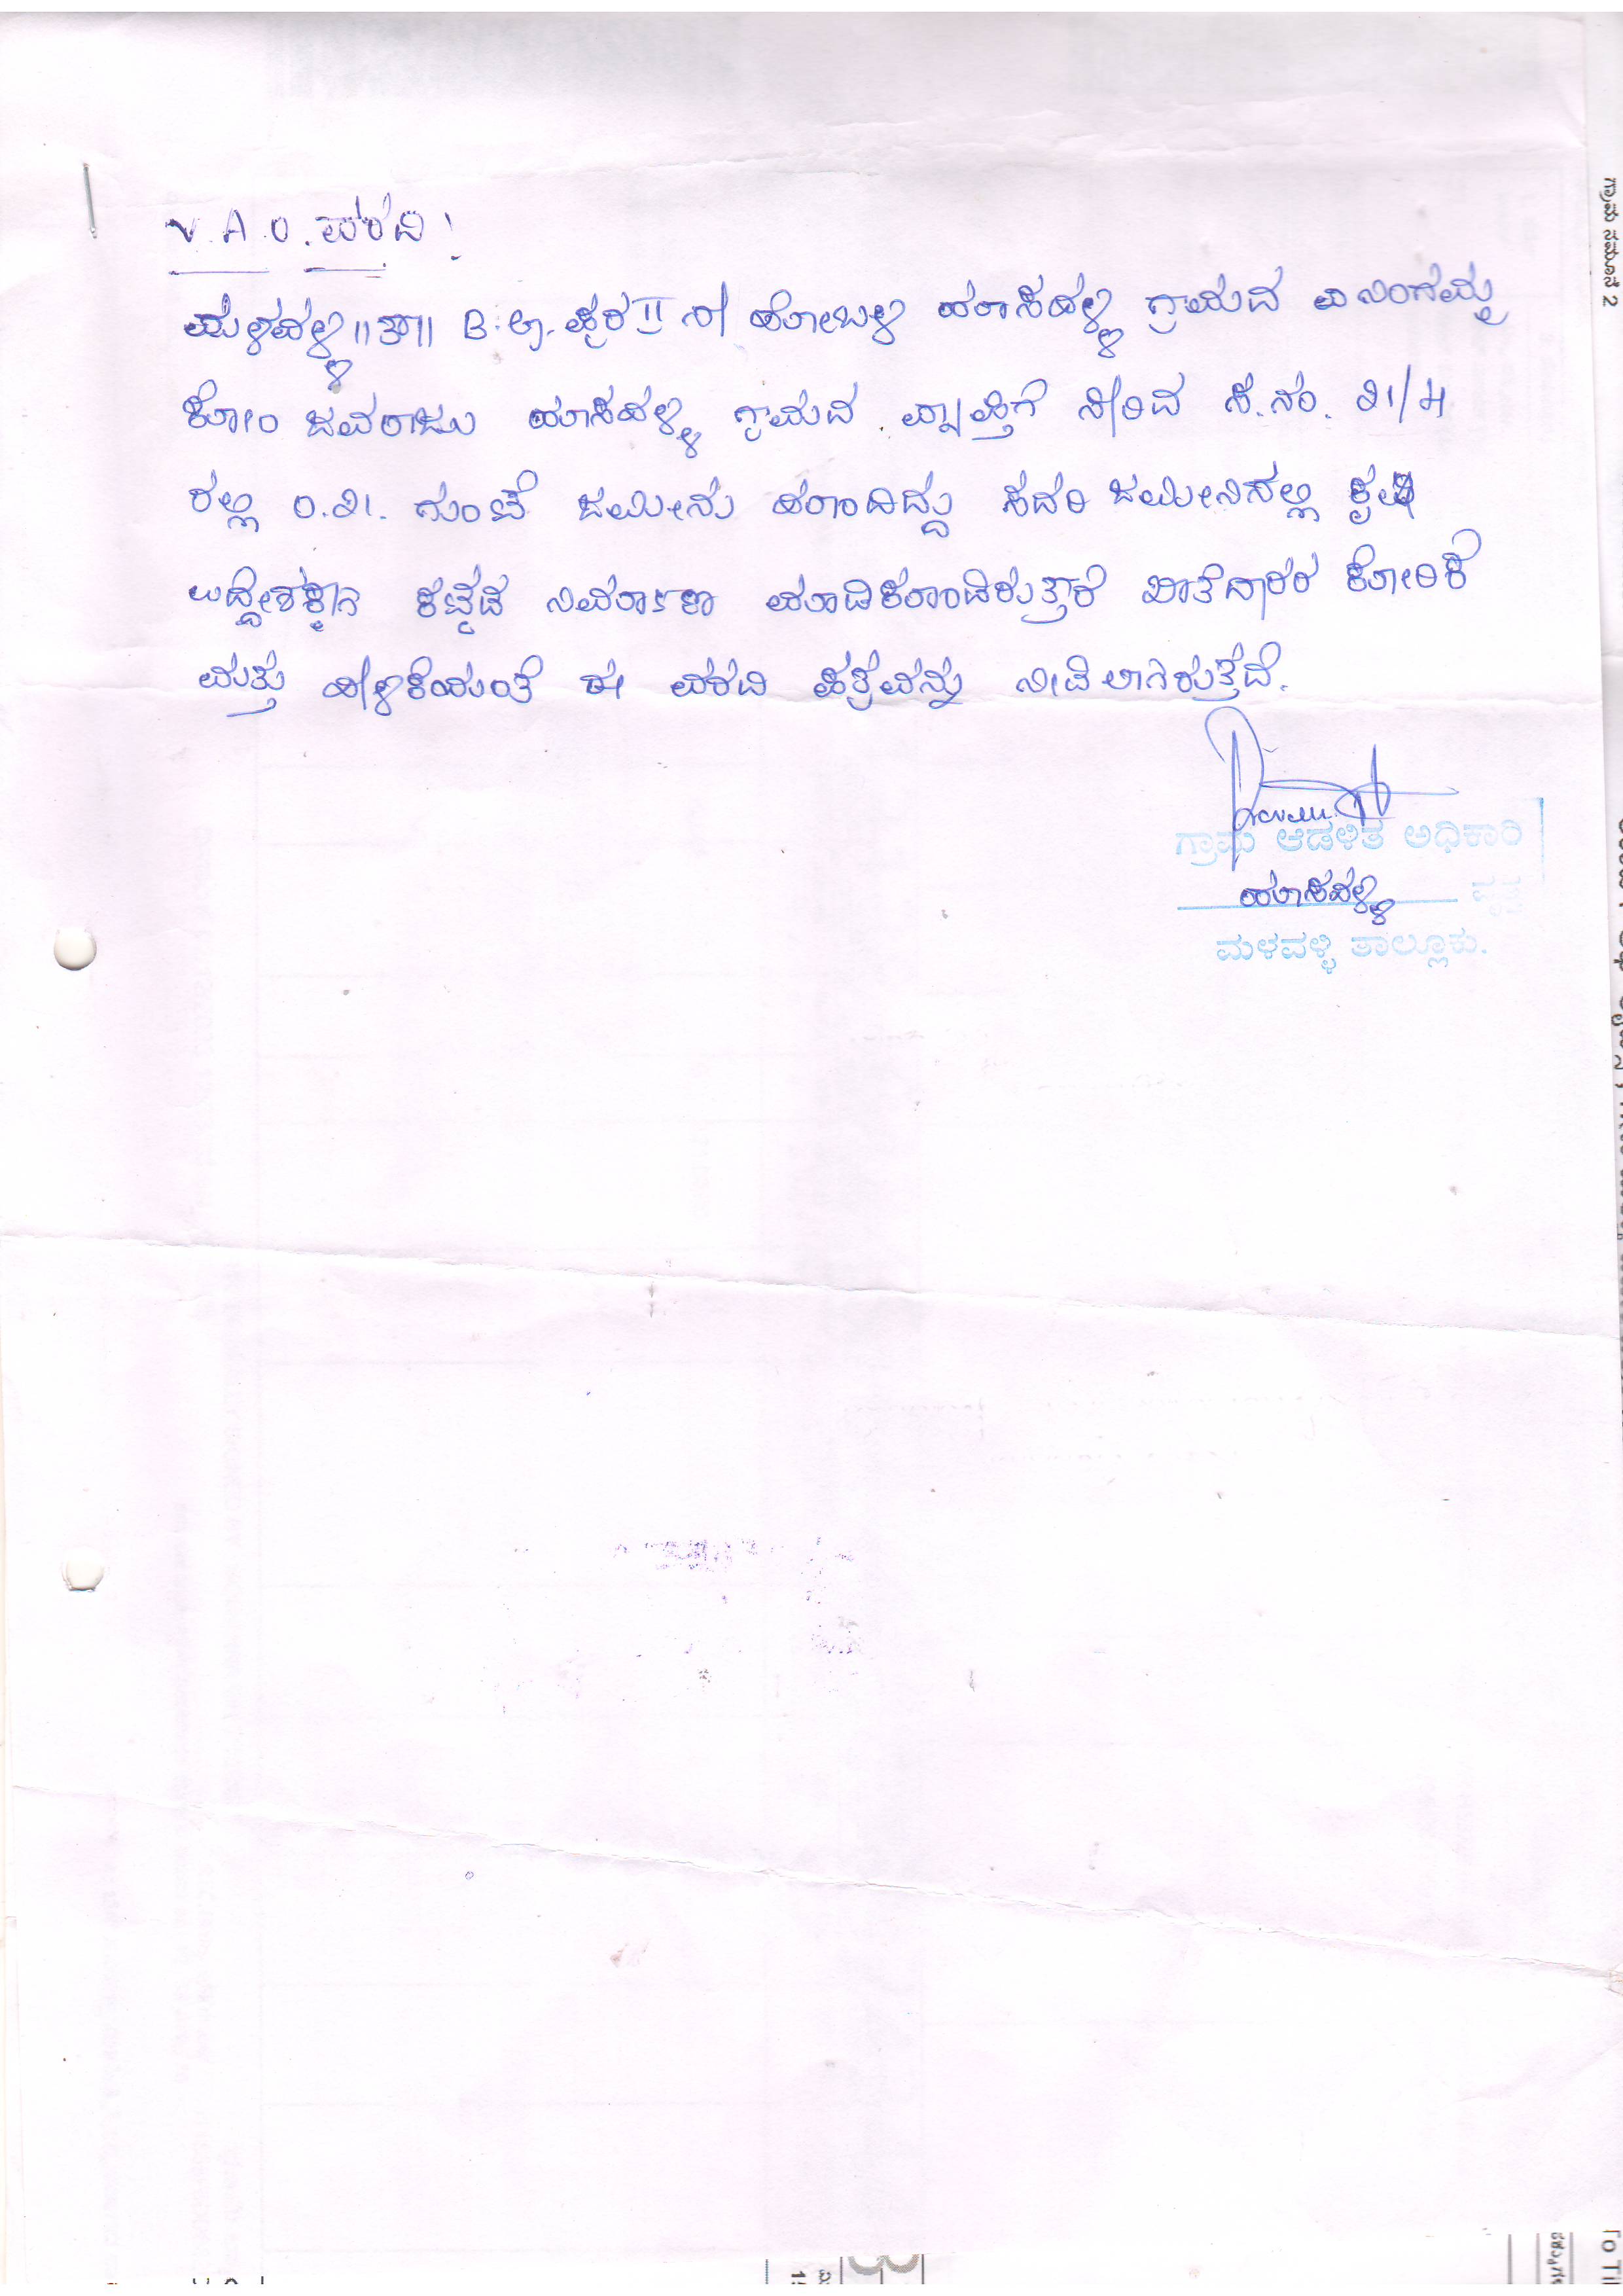 V.A.O. ವರದಿ!
ಮಳವಳ್ಳಿ ||ತಾ|| B.ಜಿ.ಪುರ II ನೇ ಹೋಬಳಿ ಹೂಸಹಳ್ಳಿ ಗ್ರಾಮದ ನಿಂಗಮ್ಮ
ಕೋಂ ಜವರಾಜು ಹೂಸಹಳ್ಳಿ ಗ್ರಾಮದ ವ್ಯಾಪ್ತಿಗೆ ಸೇರಿದ ಸ.ನಂ. 21/4
ರಲ್ಲಿ 0.21. ಗುಂಟೆ ಜಮೀನು ಹೊಂದಿದ್ದು ಸದರಿ ಜಮೀನಿನಲ್ಲಿ ಕೃಷಿ
ಉದ್ದೇಶಕ್ಕಾಗಿ ಕಟ್ಟಡ ನಿರ್ಮಾಣ ಮಾಡಿಕೊಂಡಿರುತ್ತಾರೆ ಖಾತೆದಾರರ ಕೋರಿಕೆ
ಮತ್ತು ಹೇಳಿಕೆಯಂತೆ ಈ ವರದಿ ಪತ್ರವನ್ನು ನೀಡಲಾಗಿರುತ್ತದೆ.
ಗ್ರಾಮ ಆಡಳಿತ ಅಧಿಕಾರಿ
ಹೂಸಹಳ್ಳಿ ವೃತ್ತ
ಮಳವಳ್ಳಿ ತಾಲ್ಲೂಕು.
ಗ್ರಾಮ ನಮೂನೆ 2